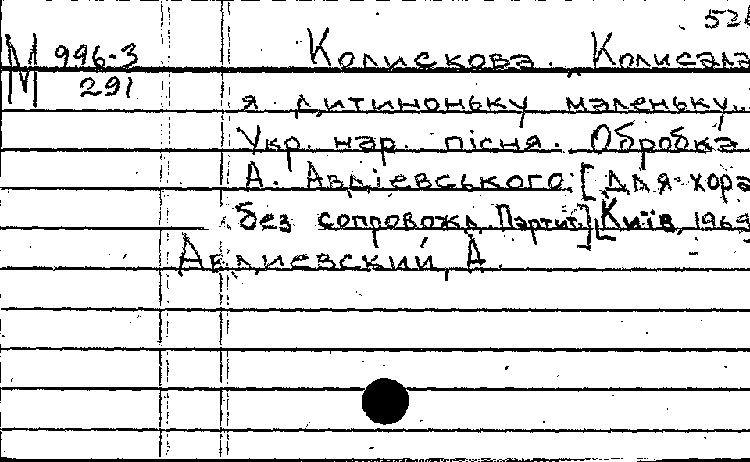 М 996-3
291
Колискова. Колисала
я дитиноньку маленьку...
Укр. нар. пісня. Обробка
А. Авдієвського. [Для хора
без сопровожд. Партит.] Київ, 1969
Авдиевский, А.